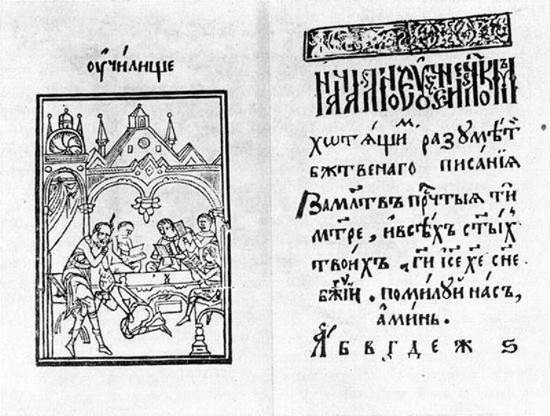 оучилище
хѡтѧщиⷨ разꙋмѣⷮ
бж҃твенаго писанїѧ
За мл҃твъ прⷱ҇тыѧ ти
мт҃ре, и всѣхъ ст҃ыⷯ
твоихъ. гⷭ҇и і҆се хе сн҃е
бж҃їй. помилꙋй насъ,
аминь.
А б в г д е ж ѕ